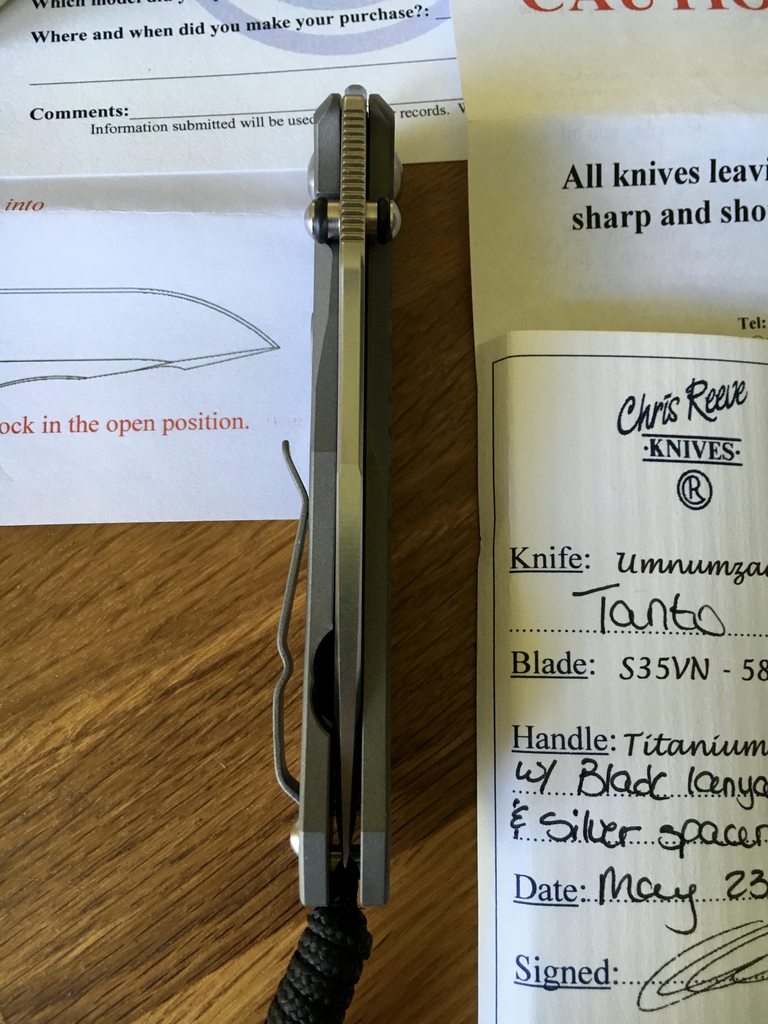 Where and when did you make your purchase?:
Comments:
Information submitted will be used records.
into
ock in the open position.
CAUTIO
All knives leavi
sharp and sho
Tel:
Chris Reeve
·KNIVES·
R
Knife: Umnumzaa
Tanto
Blade: S35VN - 58
Handle: Titanium
w/ Black lanya
& Silver spacer
Date: May 23
Signed: